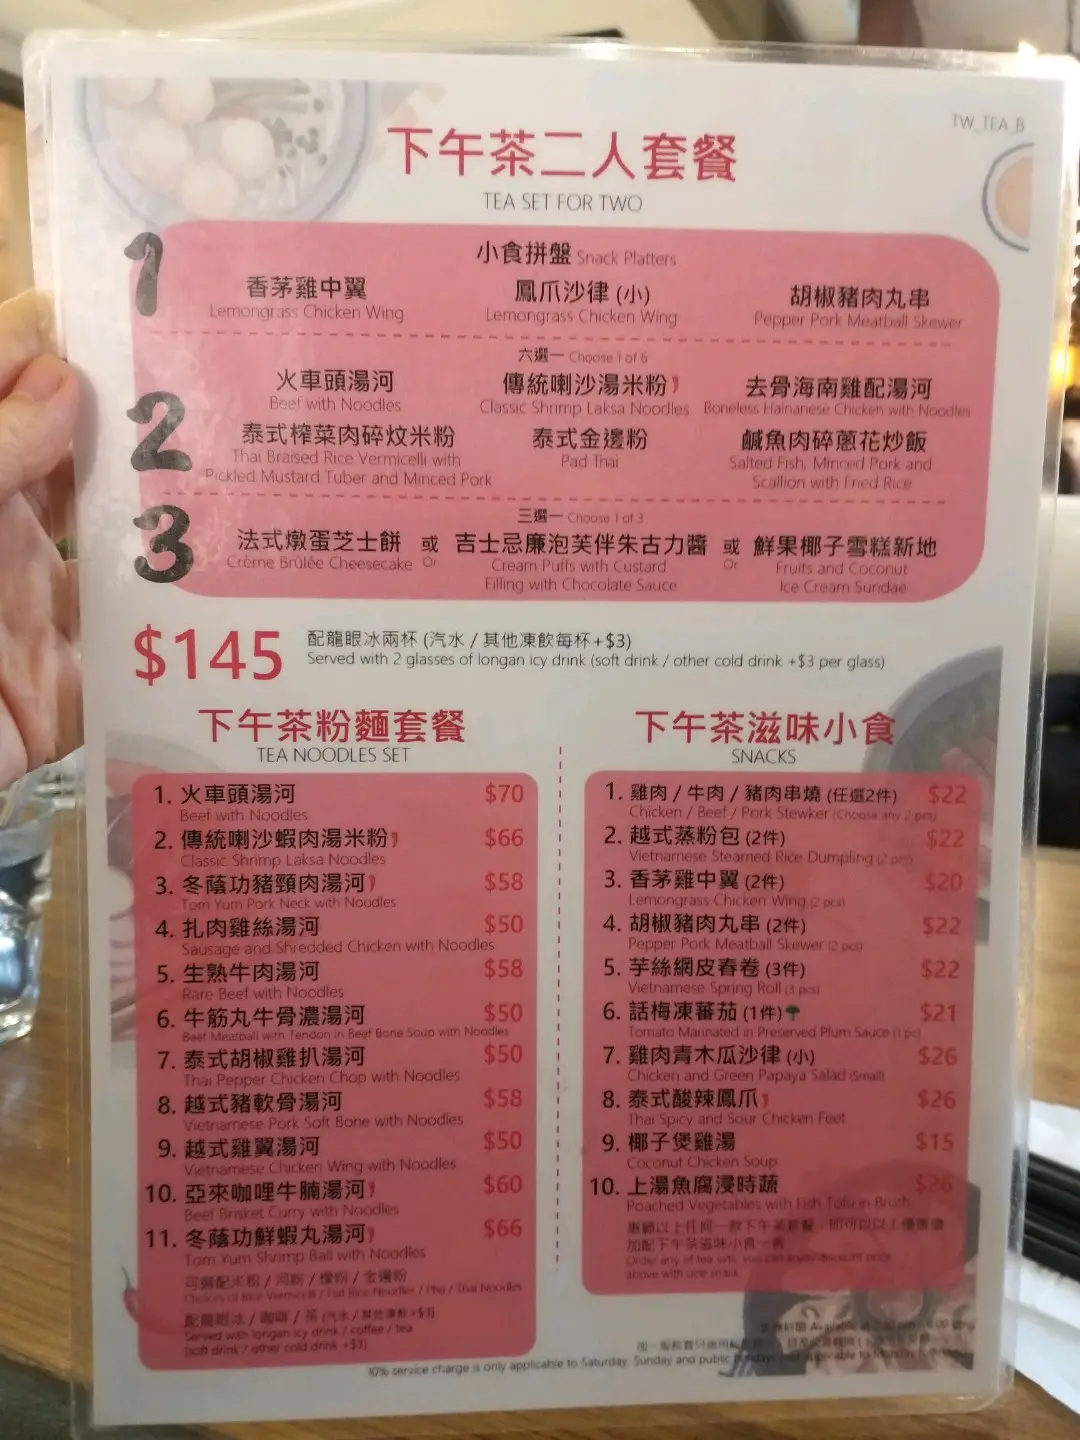 TW_TEA_B
下午茶二人套餐
TEA SET FOR TWO
1
小食拼盤 Snack Platters
香茅雞中翼 鳳爪沙律 (小) 胡椒豬肉丸串
Lemongrass Chicken Wing Lemongrass Chicken Wing Pepper Pork Meatball Skewer
六選一 Choose 1 of 6
2
火車頭湯河 傳統喇沙湯米粉 去骨海南雞配湯河
Beef with Noodles Classic Shrimp Laksa Noodles Boneless Hainanese Chicken with Noodles
泰式榨菜肉碎炆米粉 泰式金邊粉 鹹魚肉碎蔥花炒飯
Thai Braised Rice Vermicelli with Pad Thai Salted Fish, Minced Pork and
Pickled Mustard Tuber and Minced Pork Scallion with Fried Rice
三選一 Choose 1 of 3
3
法式燉蛋芝士餅 或 吉士忌廉泡芙伴朱古力醬 或 鮮果椰子雪糕新地
Crème Brûlée Cheesecake Or Cream Puffs with Custard Or Fruits and Coconut
Filling with Chocolate Sauce Ice Cream Sundae
$145
配龍眼冰兩杯 (汽水 / 其他凍飲每杯+$3)
Served with 2 glasses of longan icy drink (soft drink / other cold drink +$3 per glass)
下午茶粉麵套餐
TEA NOODLES SET
1. 火車頭湯河 $70
Beef with Noodles
2. 傳統喇沙蝦肉湯米粉 $66
Classic Shrimp Laksa Noodles
3. 冬蔭功豬頸肉湯河 $58
Tom Yum Pork Neck with Noodles
4. 扎肉雞絲湯河 $50
Sausage and Shredded Chicken with Noodles
5. 生熟牛肉湯河 $58
Rare Beef with Noodles
6. 牛筋丸牛骨濃湯河 $50
Beef Meatball with Tendon in Beef Bone Soup with Noodles
7. 泰式胡椒雞扒湯河 $50
Thai Pepper Chicken Chop with Noodles
8. 越式豬軟骨湯河 $58
Vietnamese Pork Soft Bone with Noodles
9. 越式雞翼湯河 $50
Vietnamese Chicken Wing with Noodles
10. 亞來咖哩牛腩湯河 $60
Beef Brisket Curry with Noodles
11. 冬蔭功鮮蝦丸湯河 $66
Tom Yum Shrimp Ball with Noodles
可選配米粉 / 河粉 / 檬粉 / 金邊粉
Choices of Rice Vermicelli / Flat Rice Noodles / Pho / Thai Noodles
配龍眼冰 / 咖啡 / 茶 (汽水 / 其他凍飲 +$3)
Served with longan icy drink / coffee / tea
(soft drink / other cold drink +$3)
下午茶滋味小食
SNACKS
1. 雞肉 / 牛肉 / 豬肉串燒 (任選2件) $22
Chicken / Beef / Pork Stewker (Choose any 2 pcs)
2. 越式蒸粉包 (2件) $22
Vietnamese Steamed Rice Dumpling (2 pcs)
3. 香茅雞中翼 (2件) $20
Lemongrass Chicken Wing (2 pcs)
4. 胡椒豬肉丸串 (2件) $22
Pepper Pork Meatball Skewer (2 pcs)
5. 芋絲網皮春卷 (3件) $22
Vietnamese Spring Roll (3 pcs)
6. 話梅凍蕃茄 (1件) $21
Tomato Marinated in Preserved Plum Sauce (1 pc)
7. 雞肉青木瓜沙律 (小) $26
Chicken and Green Papaya Salad (Small)
8. 泰式酸辣鳳爪 $26
Thai Spicy and Sour Chicken Feet
9. 椰子煲雞湯 $15
Coconut Chicken Soup
10. 上湯魚腐浸時蔬 $26
Poached Vegetables with Fish Tofu in Broth
惠顧以上任何一款下午茶套餐，即可以以上優惠價
加配下午茶滋味小食一客
Order any of tea sets, you can enjoy discount price
above with one snack
10% service charge is only applicable to Saturday, Sunday and public